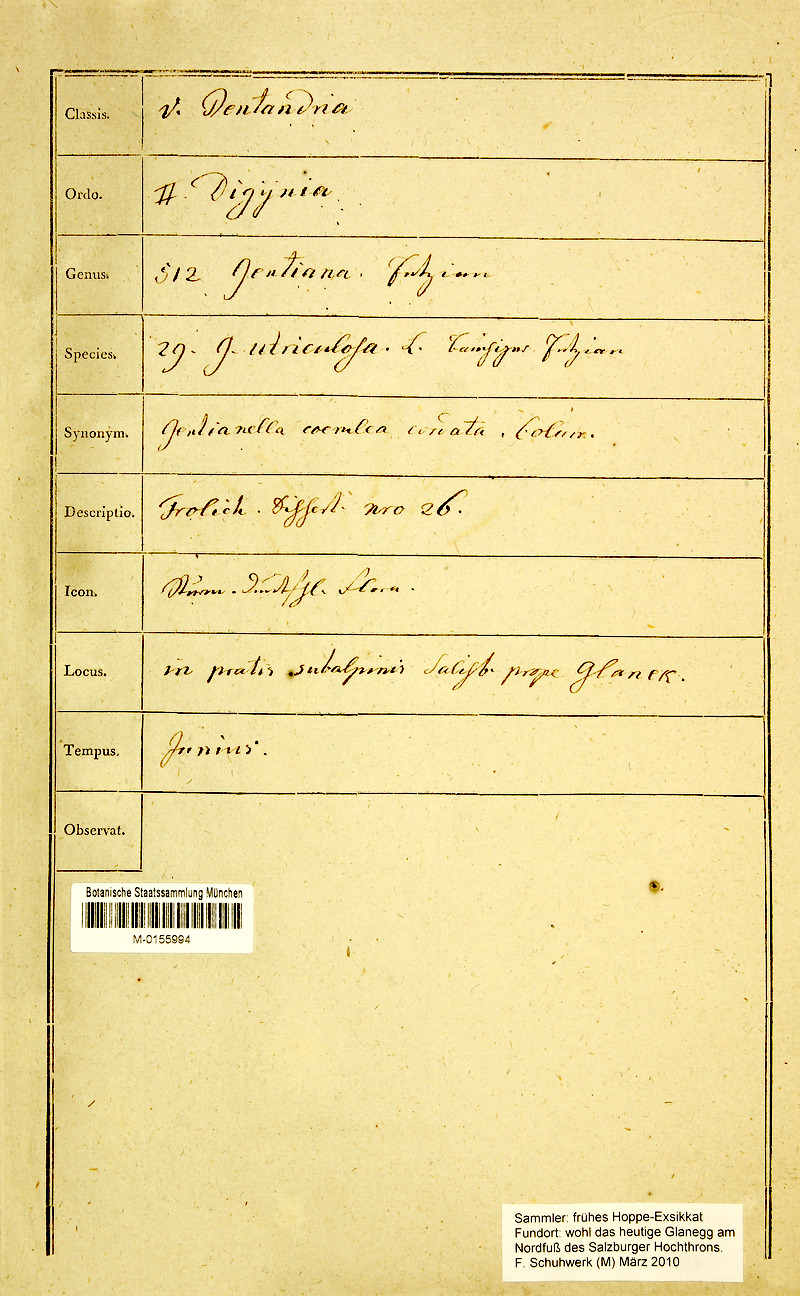 Classis. V. Pentandria
Ordo. II. Digynia
Genus. 512 Gentiana. Enzian
Species. 29. G. utriculosa. L. Enzian
Synonym. Gentianella coerulea. Colum.
Descriptio. Frolich. Dissert. nro 26.
Icon. Sturm. Flora.
Locus. in pratis subalpinis Salisb. prope Glanek.
Tempus. Junius.
Observat.
Botanische Staatssammlung München
M-0155994
Sammler: frühes Hoppe-Exsikkat
Fundort: wohl das heutige Glanegg am
Nordfuß des Salzburger Hochthrons.
F. Schuhwerk (M) März 2010